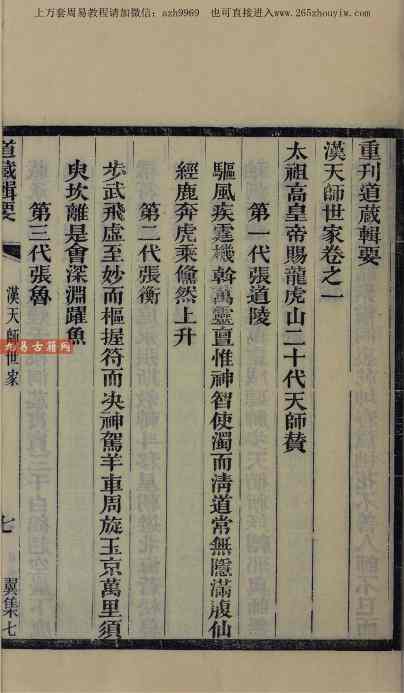 上万套周易教程请加微信：azh9969　也可直接进入www.265zhouyiw.com
重刊道藏輯要
漢天師世家卷之一
太祖高皇帝賜龍虎山二十代天師賛
第一代張道陵
驅風疾霆機斡萬靈亶惟神智使濁而清道常無隱滿腹仙
經鹿奔虎乘儵然上升
第二代張衡
步武飛虛至妙而樞握符而决神駕羊車周旋玉京萬里須
臾坎離是會深淵躍魚
第三代張魯
道藏輯要
漢天師世家
七
翼集七
九易古籍网